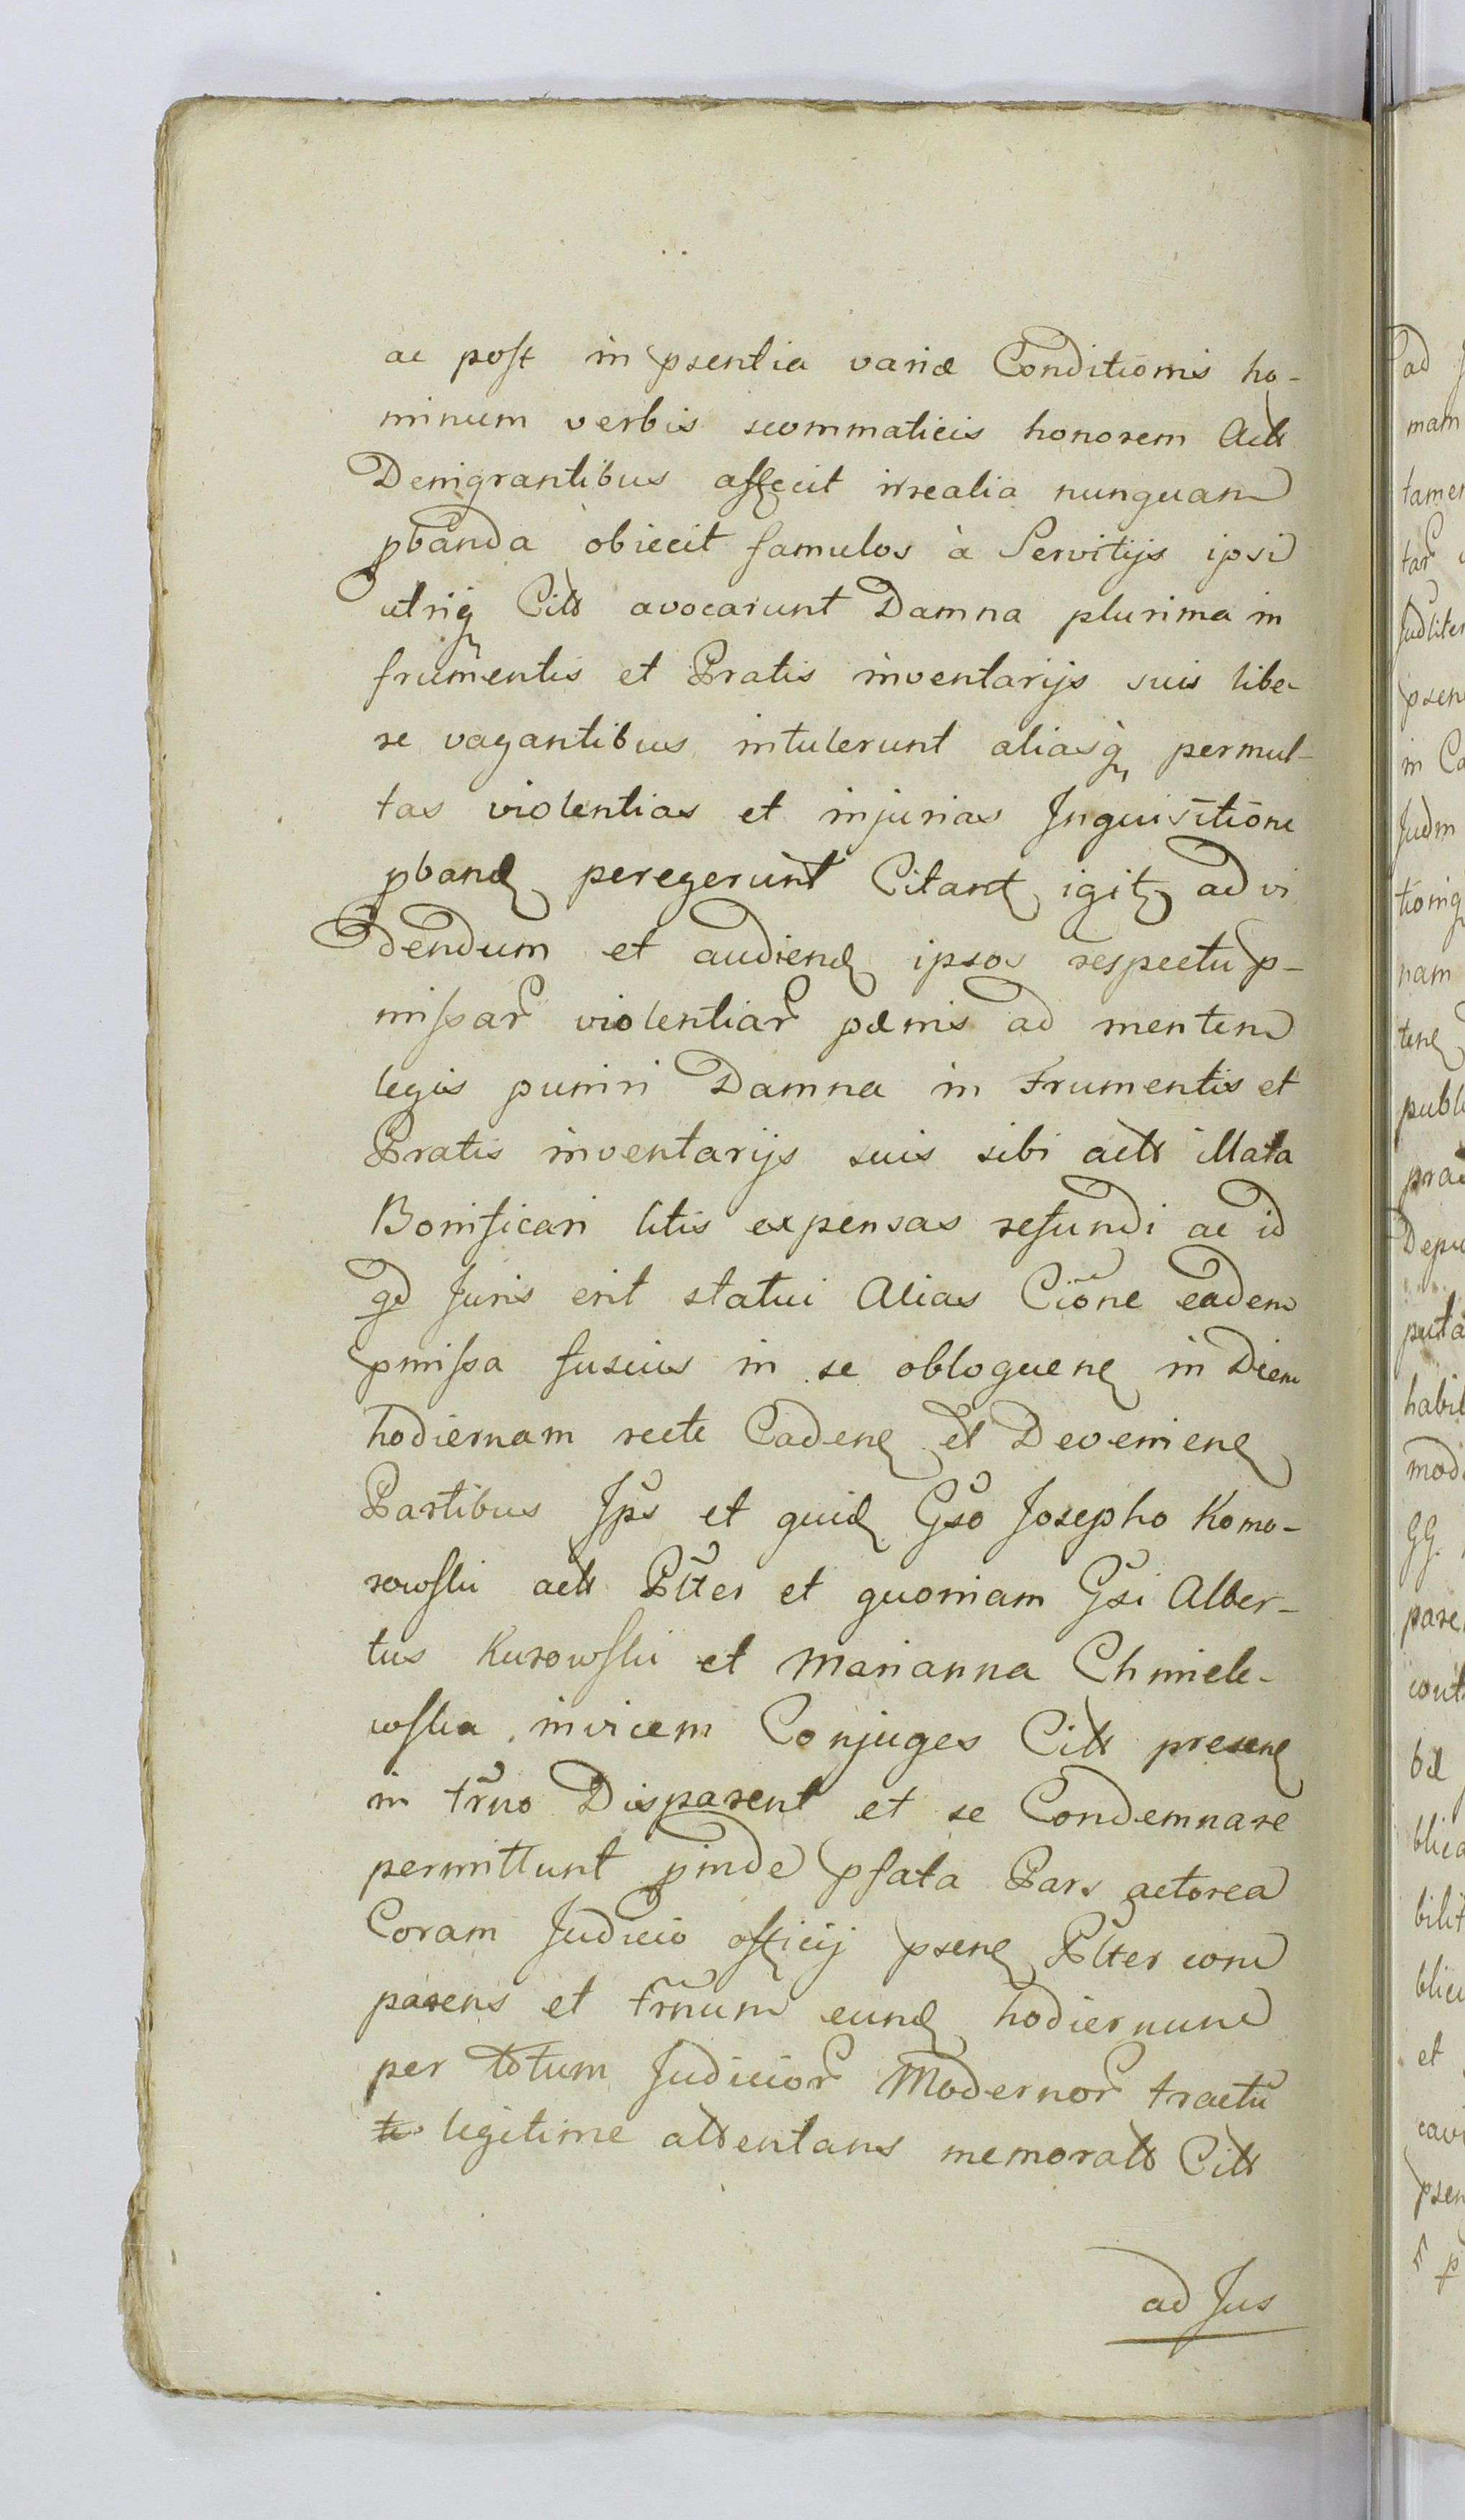 ac post in psentia variæ Conditionis ho-
minum verbis scommaticis honorem Actt
Denigrantibus affecit irrealia nunquam
pbanda obiecit famulos à Servitijs ipsi
utriq Citt avocarunt Damna plurima in
frumentis et Pratis inventarijs suis libe-
re vagantibus intulerunt aliasq permul-
tas violentias et injurias Inquisitione
pband peregerunt Citant igit ad vi
dendum et audiend ipsos respectu p-
missar violentiar pænis ad mentem
legis puniri Damna in Frumentis et
Pratis inventarijs suis sibi actt illata
Bonificari litis expensas refundi ac id
qd Juris erit statui Alias Cione eadem
pmissa fusius in se obloquen in Diem
hodiernam recte Caden et Devenien
Partibus Jps et quid Gso Josepho Komo-
rowski actt Plter et quoniam Gsi Alber-
tus Kurowski et Marianna Chmiele-
wska invicem Conjuges Citt presen
in trno Disparent et se Condemnare
permittunt pinde pfata Pars actorea
Coram Judicio officij psen Plter com
parens et trnum eund hodiernum
per totum Judicior Modernor tractu
te legitime attentans memoratt Citt
ad Jus
ad
mam
tamen
tar
Judliter
psen
in Ca
Judm
tioniq
nam
ten
publi
præ
Depu
puta
habil
mod
GG.
pare
cont
bæ
blica
bilit
blicu
et
cavi
psen